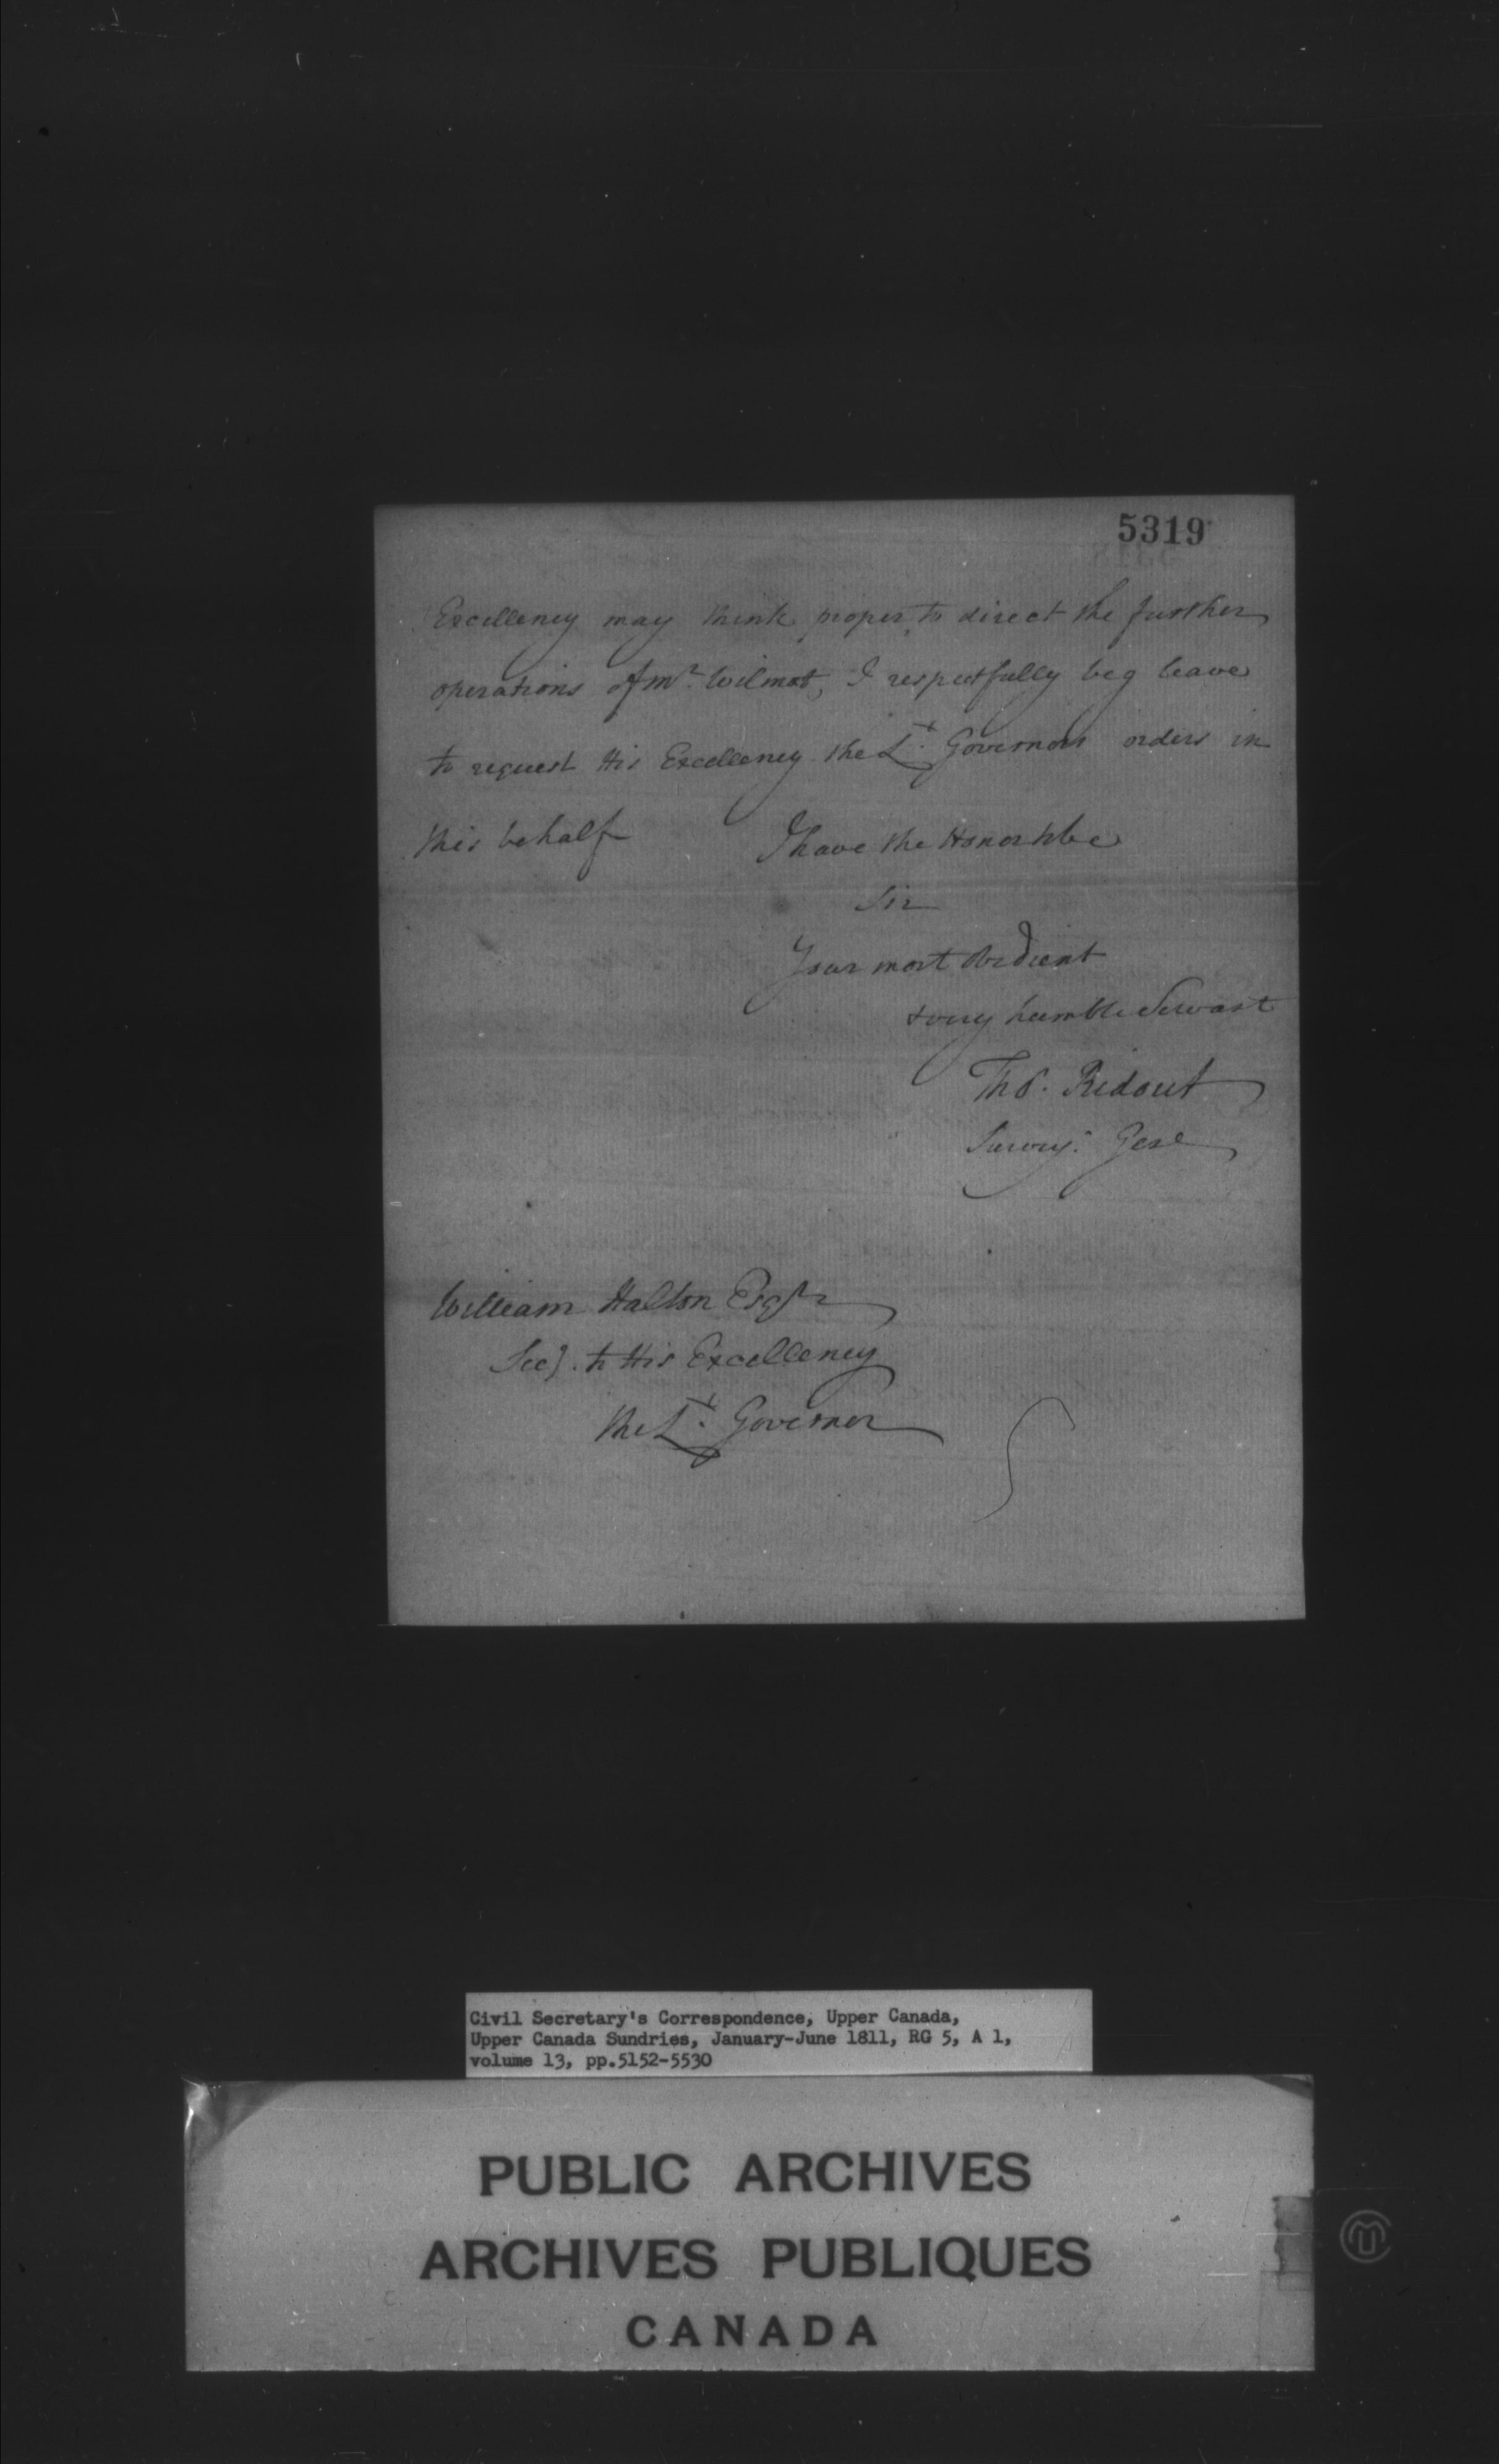 5319
Excellency may think proper to direct the further
operations of Mr. Wilmot, I respectfully beg leave
to request His Excellency the Lt. Governors orders in
this behalf I have the Honor to be
Sir
Your most Obedient
& very humble Servant
Thos. Ridout
Survey. Genl
William Halton Esqr
Secy. to His Excellency
the Lt. Governor
Civil Secretary's Correspondence, Upper Canada,
Upper Canada Sundries, January-June 1811, RG 5, A 1,
volume 13, pp.5152-5530
PUBLIC ARCHIVES
ARCHIVES PUBLIQUES
CANADA